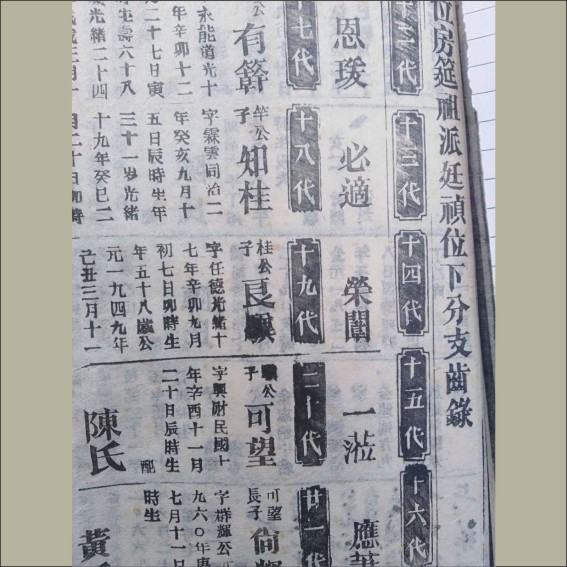 位房筵祖派廷禎位下分支齒錄
十三代
十四代
十五代
十六代
恩瑗
必適
榮闈
一蒞
應
十七代
十八代
十九代
二十代
廿一代
公
有簳
永能道光十
年辛卯十二
二十七日寅
生壽六十八
光緒二十四
竿公
子
知桂
字霖雲同治二
年癸亥九月十
五日辰時生年
三十一岁光緒
十九年癸巳二
月二十日卯時
桂公
子
良
字任德光緒十
七年辛卯九月
初七日卯時生
年五十八歲公
元一九四九年
己丑三月十一
公
子
可望
字興財民國十
年辛酉十一月
二十日辰時生
配
陳氏
可望
長子
尙輝
字群輝公
九六〇年庚
七月十一日
時生
黃